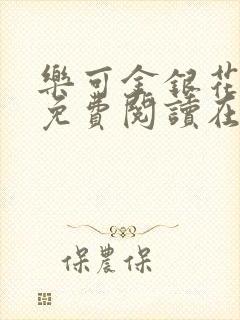 樂可金銀花
免費閱讀在
保農保